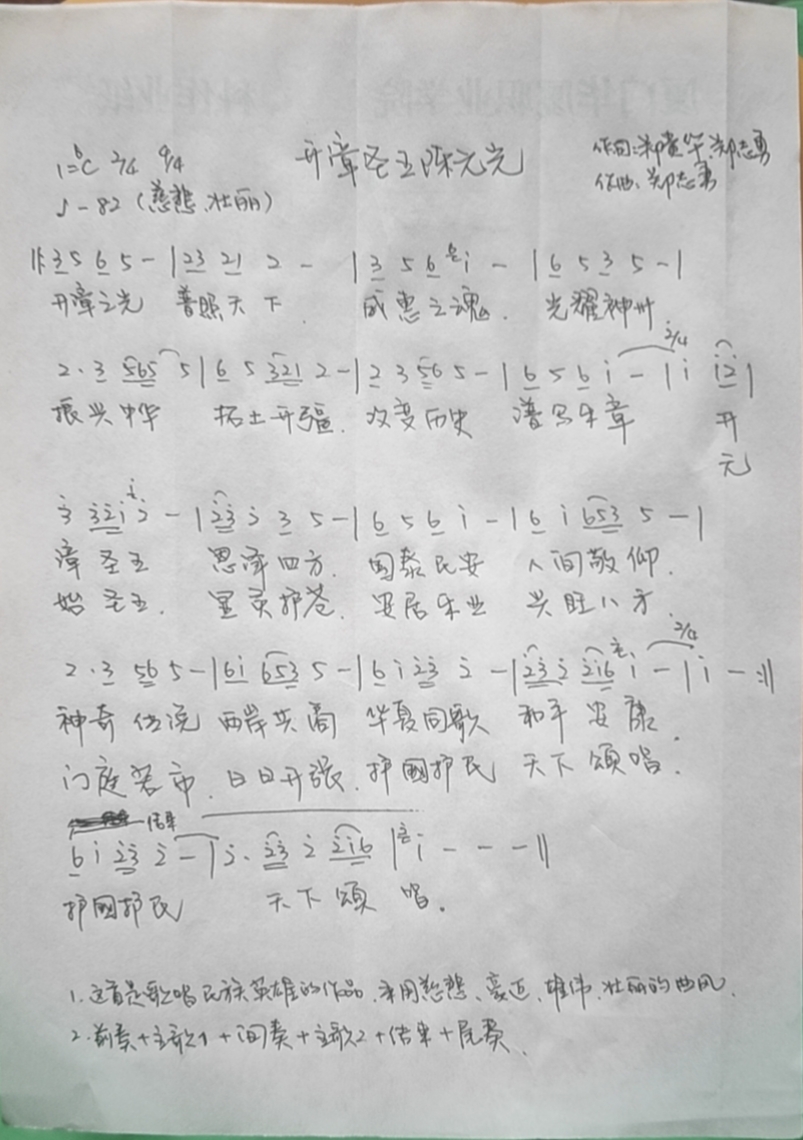 开漳圣王陈元光
1=ᵇC 2/4 4/4
作词:郑 华、郑志勇
作曲:郑志勇
♩-82 (慈悲、壮丽)
‖: 3 5 6 5 - | 23 21 2 - | 3 5 6 i - | 6 5 3 5 - |
开漳之光 普照天下 威惠之魂. 光耀神州.
2/4
2·3 565 5 | 6 5 321 2 - | 2 3 56 5 - | 6 5 6 i - | i i2 |
振兴中华 拓土开疆. 改变历史 谱写乐章 开
元
3 321 2 - | 23 3 3 5 - | 6 5 6 i - | 6 i 653 5 - |
漳圣王 恩泽四方. 国泰民安 人间敬仰.
始圣王. 显灵护苍. 安居乐业 兴旺八方.
2/4
2·3 56 5 - | 6i 653 5 - | 6 i 23 2 - | 23 2 2i6 i - | i - :‖
神奇传说 两岸共 华夏同歌 和平安康.
门庭若市. 日日开张. 护國护民 天下頌唱.
结束
6 i 23 2 - | 2· 23 2 2i6 | i - - - ‖
护國护民 天下頌唱.
1.这首是歌唱民族英雄的作品.采用慈悲、豪迈、雄伟.壮丽的曲风.
2.前奏+主歌1+间奏+主歌2+结束+尾奏.